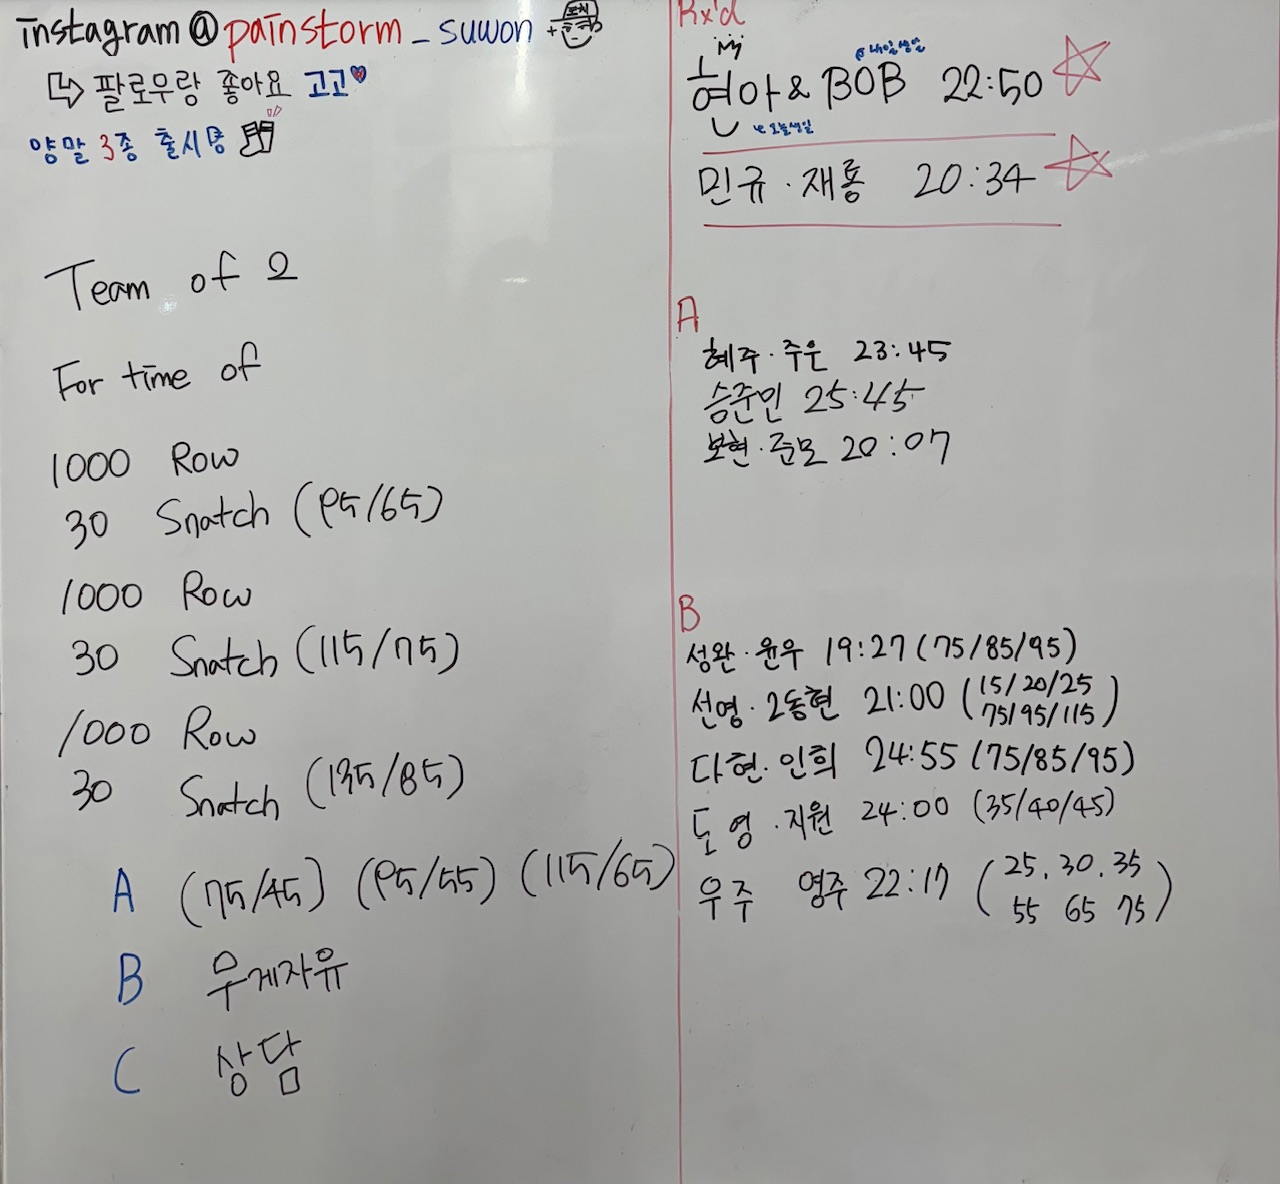 instagram@painstorm_suwon +
코치
팔로우랑 좋아요 고고
양말 3종 출시
Team of 2
For time of
1000 Row
30 Snatch (95/65)
1000 Row
30 Snatch (115/75)
1000 Row
30 Snatch (135/85)
A (75/45) (95/55) (115/65)
B 무게자유
C 상담
Rx'd
내일생일
현아 & BOB 22:50
오늘생일
민규 · 재룡 20:34
A
혜주 · 주은 23:45
승준민 25:45
보현 · 준모 20:07
B
성완 · 윤우 19:27 (75/85/95)
선영 · 2동현 21:00 (15/20/25
75/95/115)
다현 · 인희 24:55 (75/85/95)
도영 · 지원 24:00 (35/40/45)
우주 영주 22:17 (25, 30, 35
55 65 75)